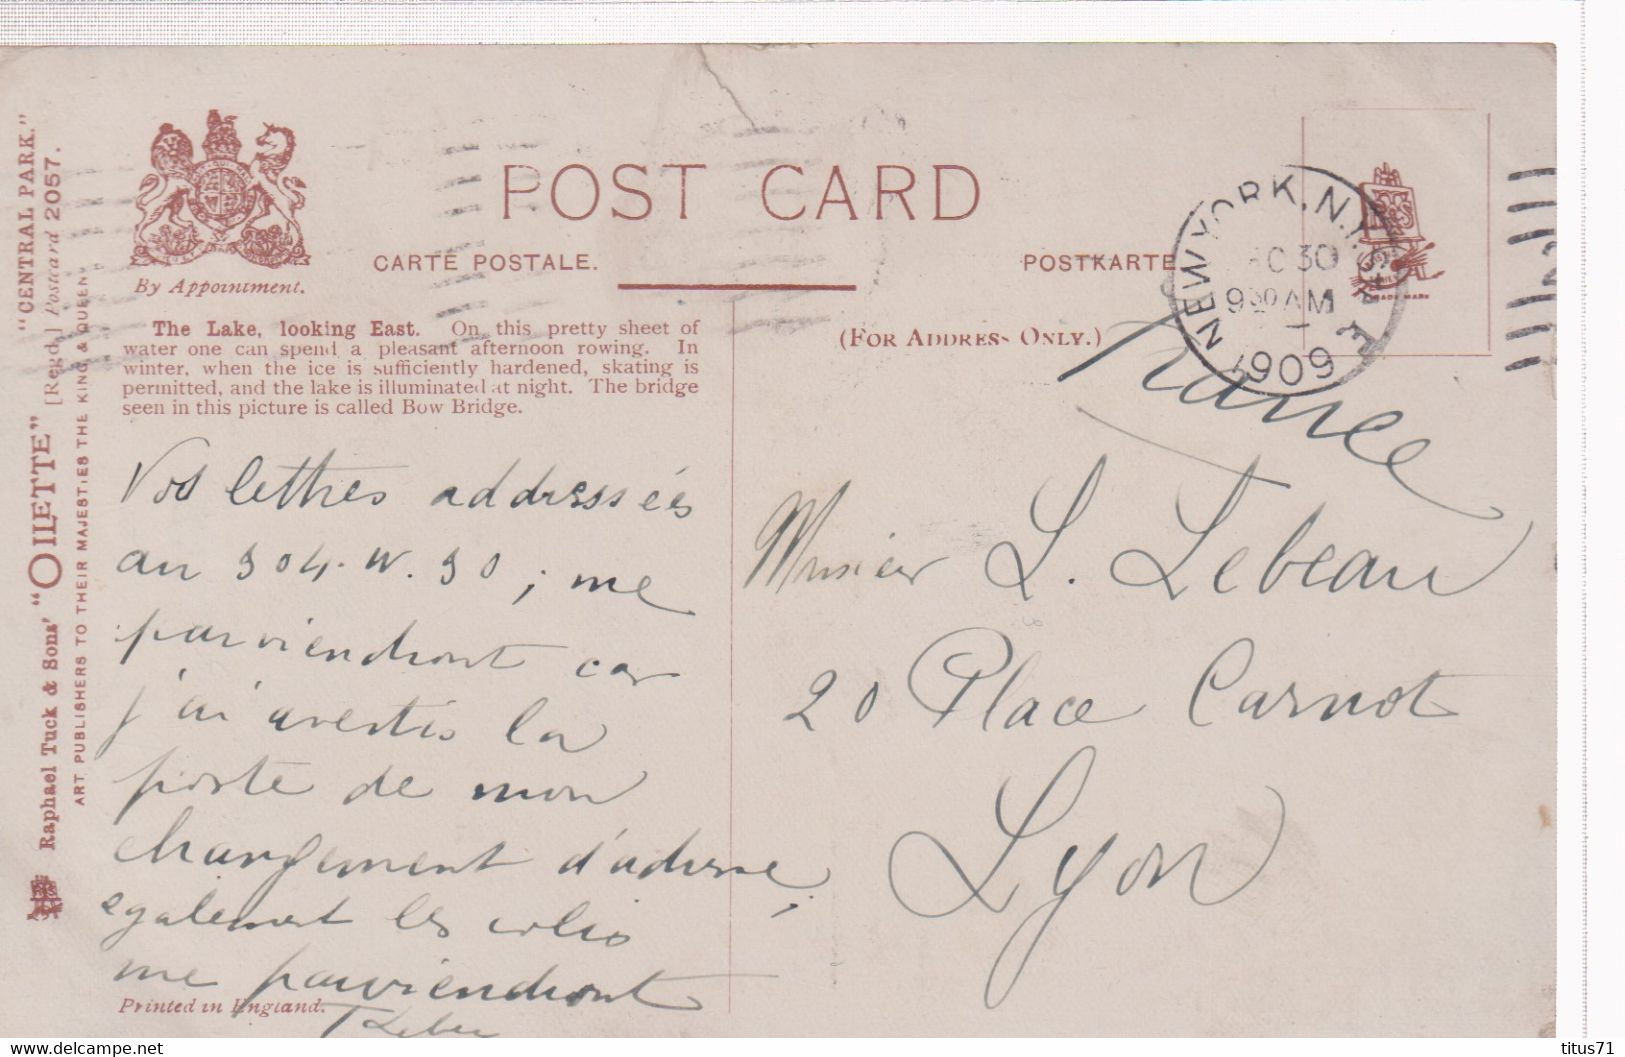 "CENTRAL PARK."
[Regd.] Postcard 2057.
Raphael Tuck & Sons' "OILETTE"
ART PUBLISHERS TO THEIR MAJESTIES THE KING & QUEEN.
By Appointment.
POST CARD
CARTE POSTALE.
POSTKARTE
(FOR ADDRESS ONLY.)
NEW YORK, N.Y.
30
930 AM
1909
TRADE MARK
The Lake, looking East. On this pretty sheet of
water one can spend a pleasant afternoon rowing. In
winter, when the ice is sufficiently hardened, skating is
permitted, and the lake is illuminated at night. The bridge
seen in this picture is called Bow Bridge.
Vos lettres addressées
au 304. W. 30 ; me
parviendront car
j'ai avertis la
poste de mon
changement d'adresse ;
egalement les colis
me parviendront
Printed in England.
France
Monsieur L. Lebeau
20 Place Carnot
Lyon
delcampe.net
titus71